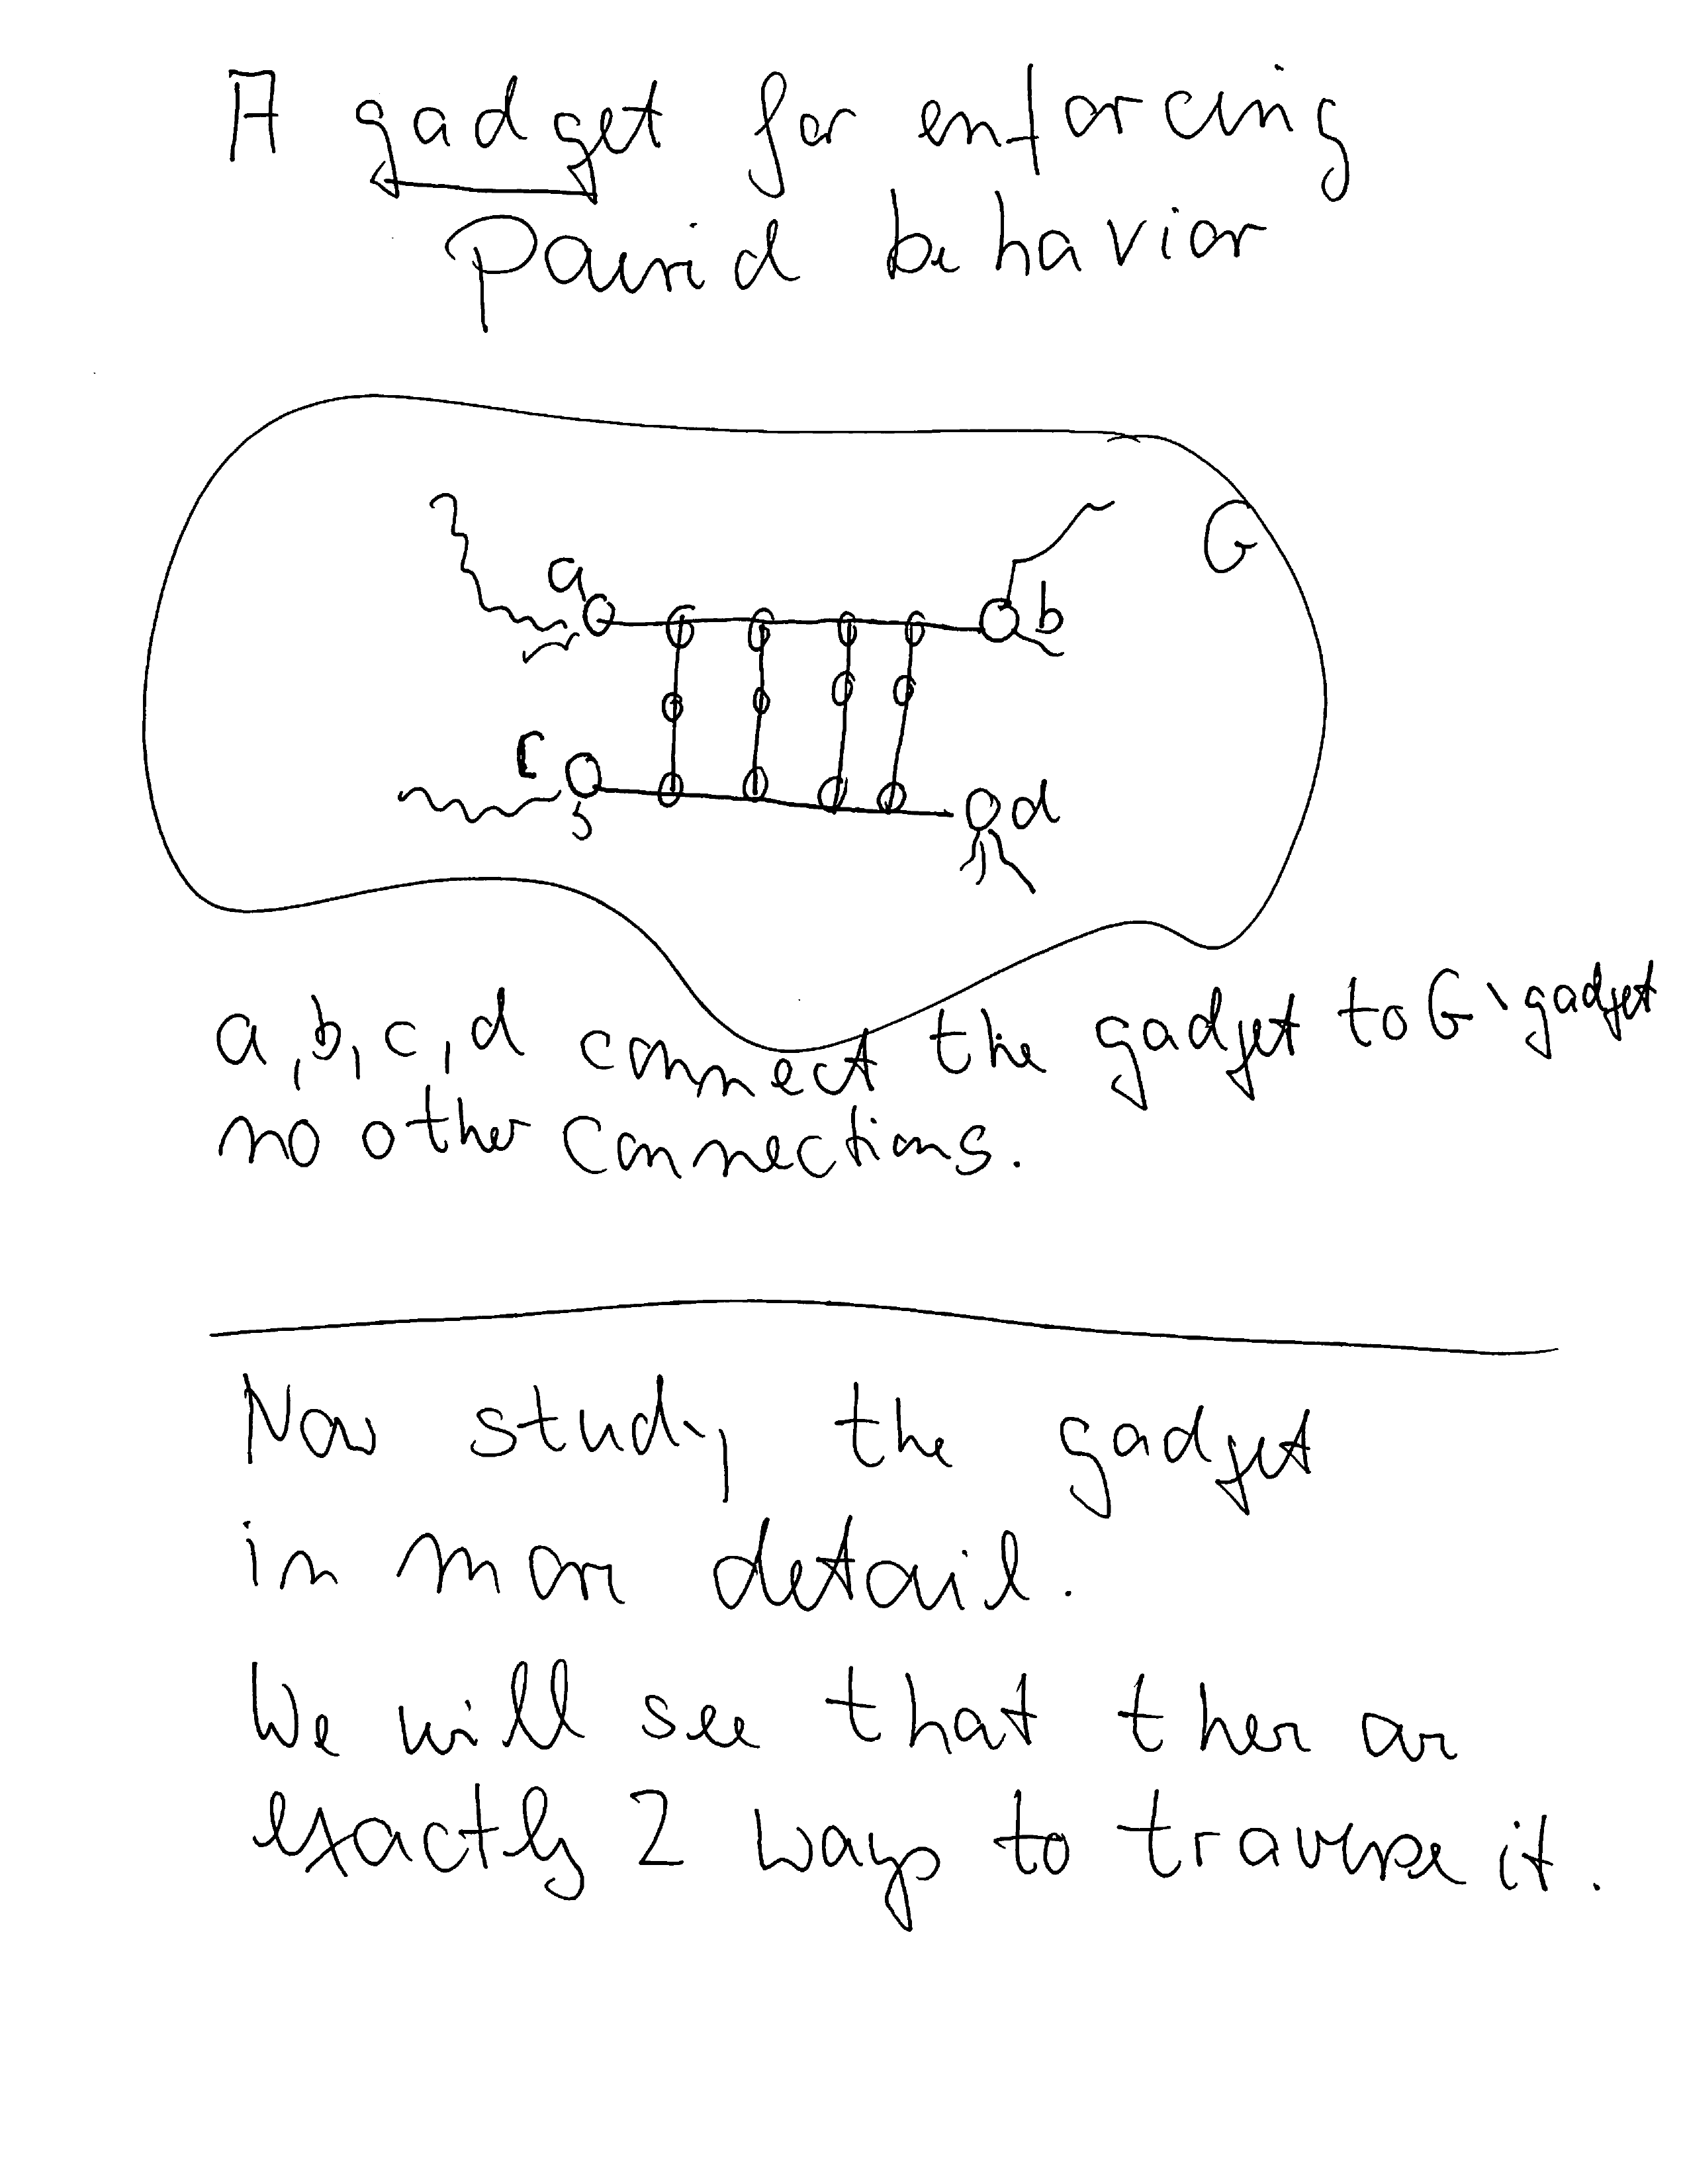 A gadget for enforcing
Paired behavior
G
a
b
c
d
a, b, c, d connect the gadget to G \ gadget
no other connections.
Now study the gadget
in more detail.
We will see that there are
exactly 2 ways to traverse it.